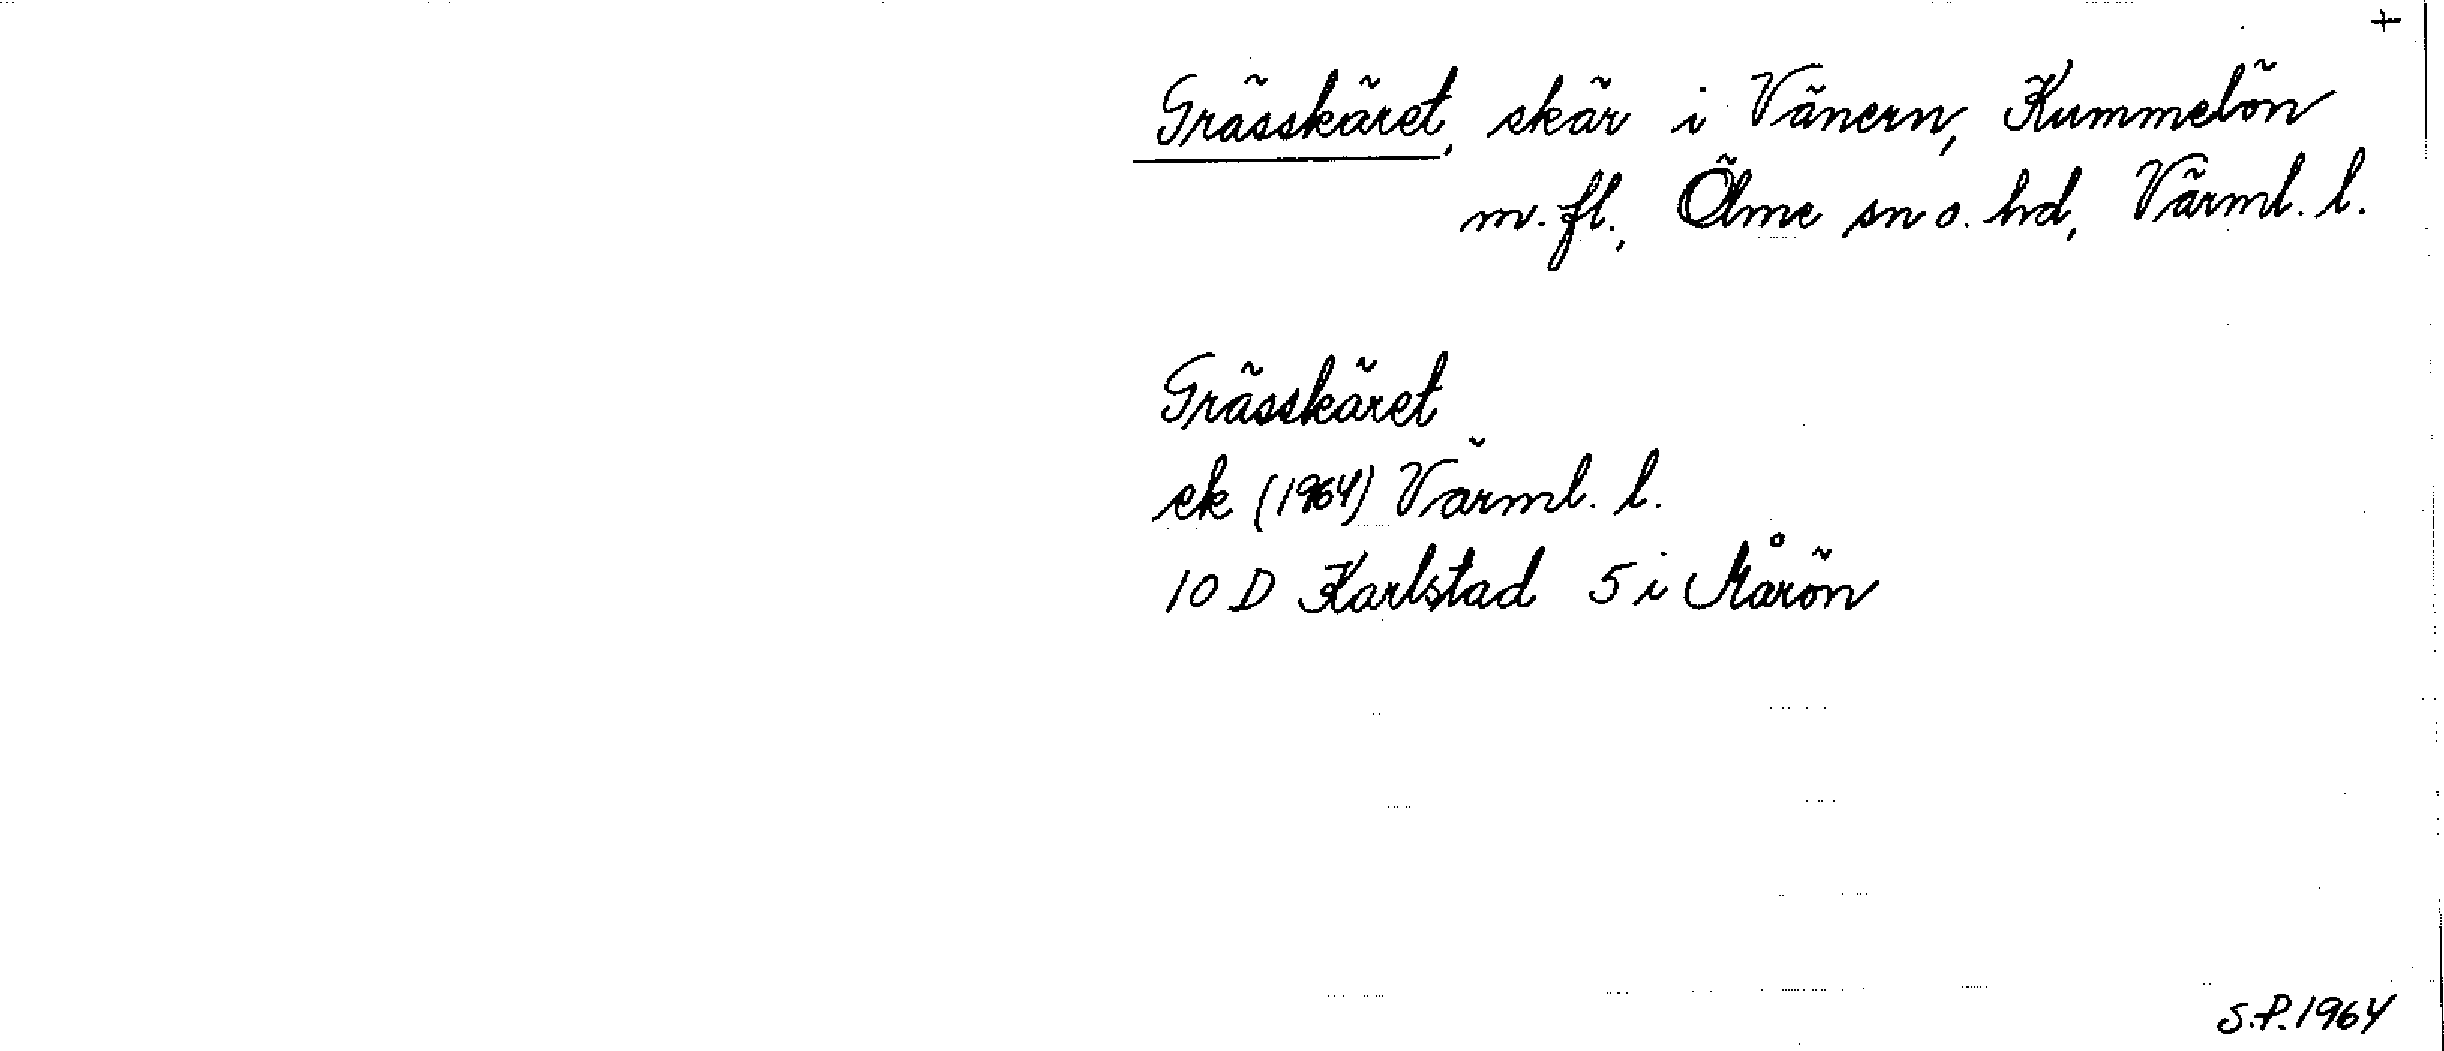 +
Grässkäret, skär i Vänern, Kummelön
m. fl., Ölme sn o. hd, Värml. l.
Grässkäret
ek (1964) Värml. l.
10 D Karlstad 5 iÅrön
S.P. 1964